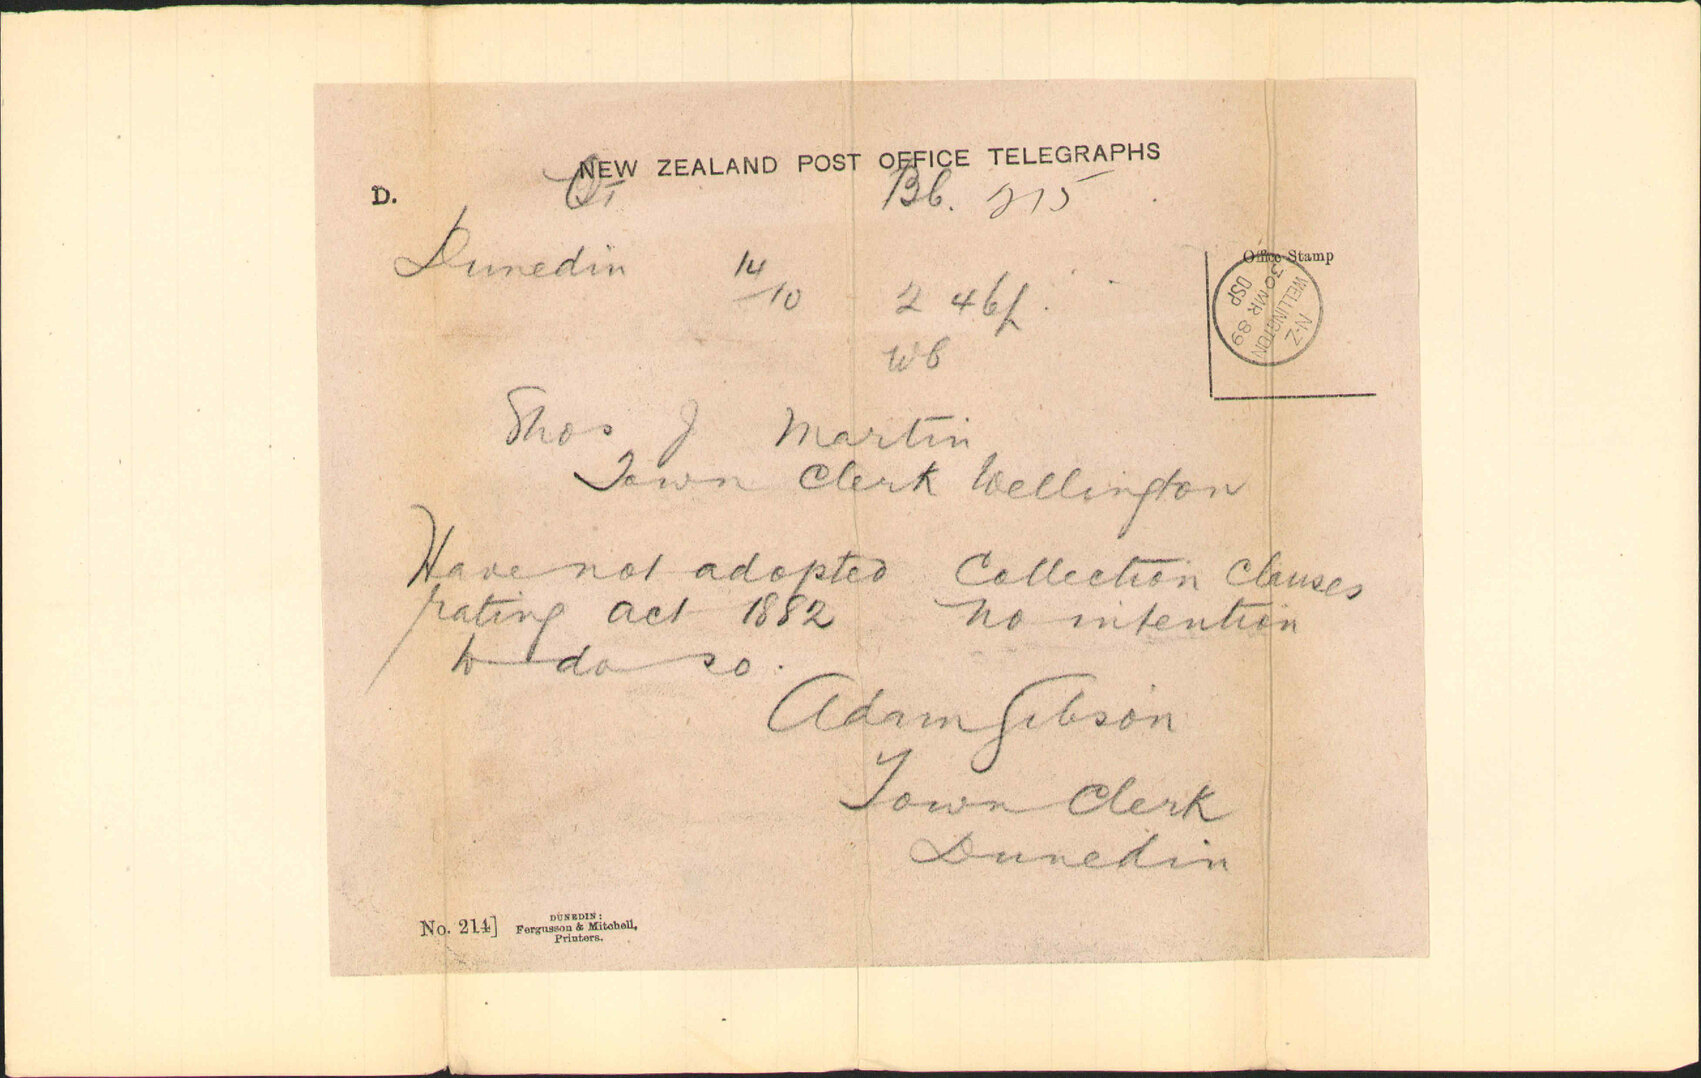 NEW ZEALAND POST OFFICE TELEGRAPHS
D.
Bb. 215
Dunedin 14/10 2 46p
Wb
Office Stamp
N.Z
WELLINGTON
30 MR 89
DSP
Thos J Martin
Town Clerk Wellington
Have not adopted Collection Clauses
rating act 1882 No intention
to do so.
Adam Gibson
Town Clerk
Dunedin
No. 214]
DUNEDIN:
Fergusson & Mitchell,
Printers.